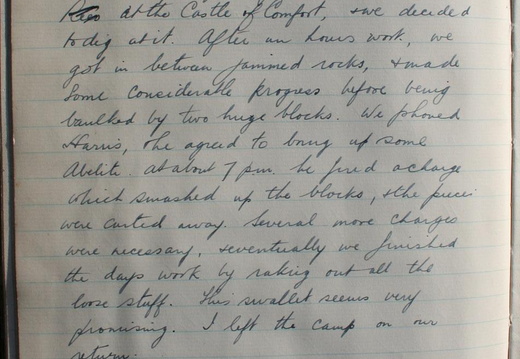 at the Castle of Comfort, & we decided
to dig at it. After an hours work, we
got in between jammed rocks, & made
some considerable progress before being
baulked by two huge blocks. We phoned
Harris, & he agreed to bring up some
Abilite. At about 7 pm. he fired a charge
which smashed up the blocks, & the pieces
were carted away. Several more charges
were necessary, & eventually we finished
the days work by raking out all the
loose stuff. This swallet seems very
promising. I left the camp on our
return.